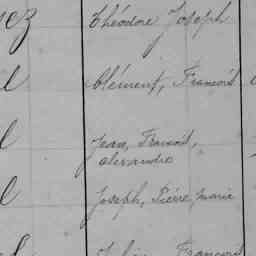 Théodore Joseph
Clément, François
Jean, François,
alexandre
Joseph, Pierre, marie
François